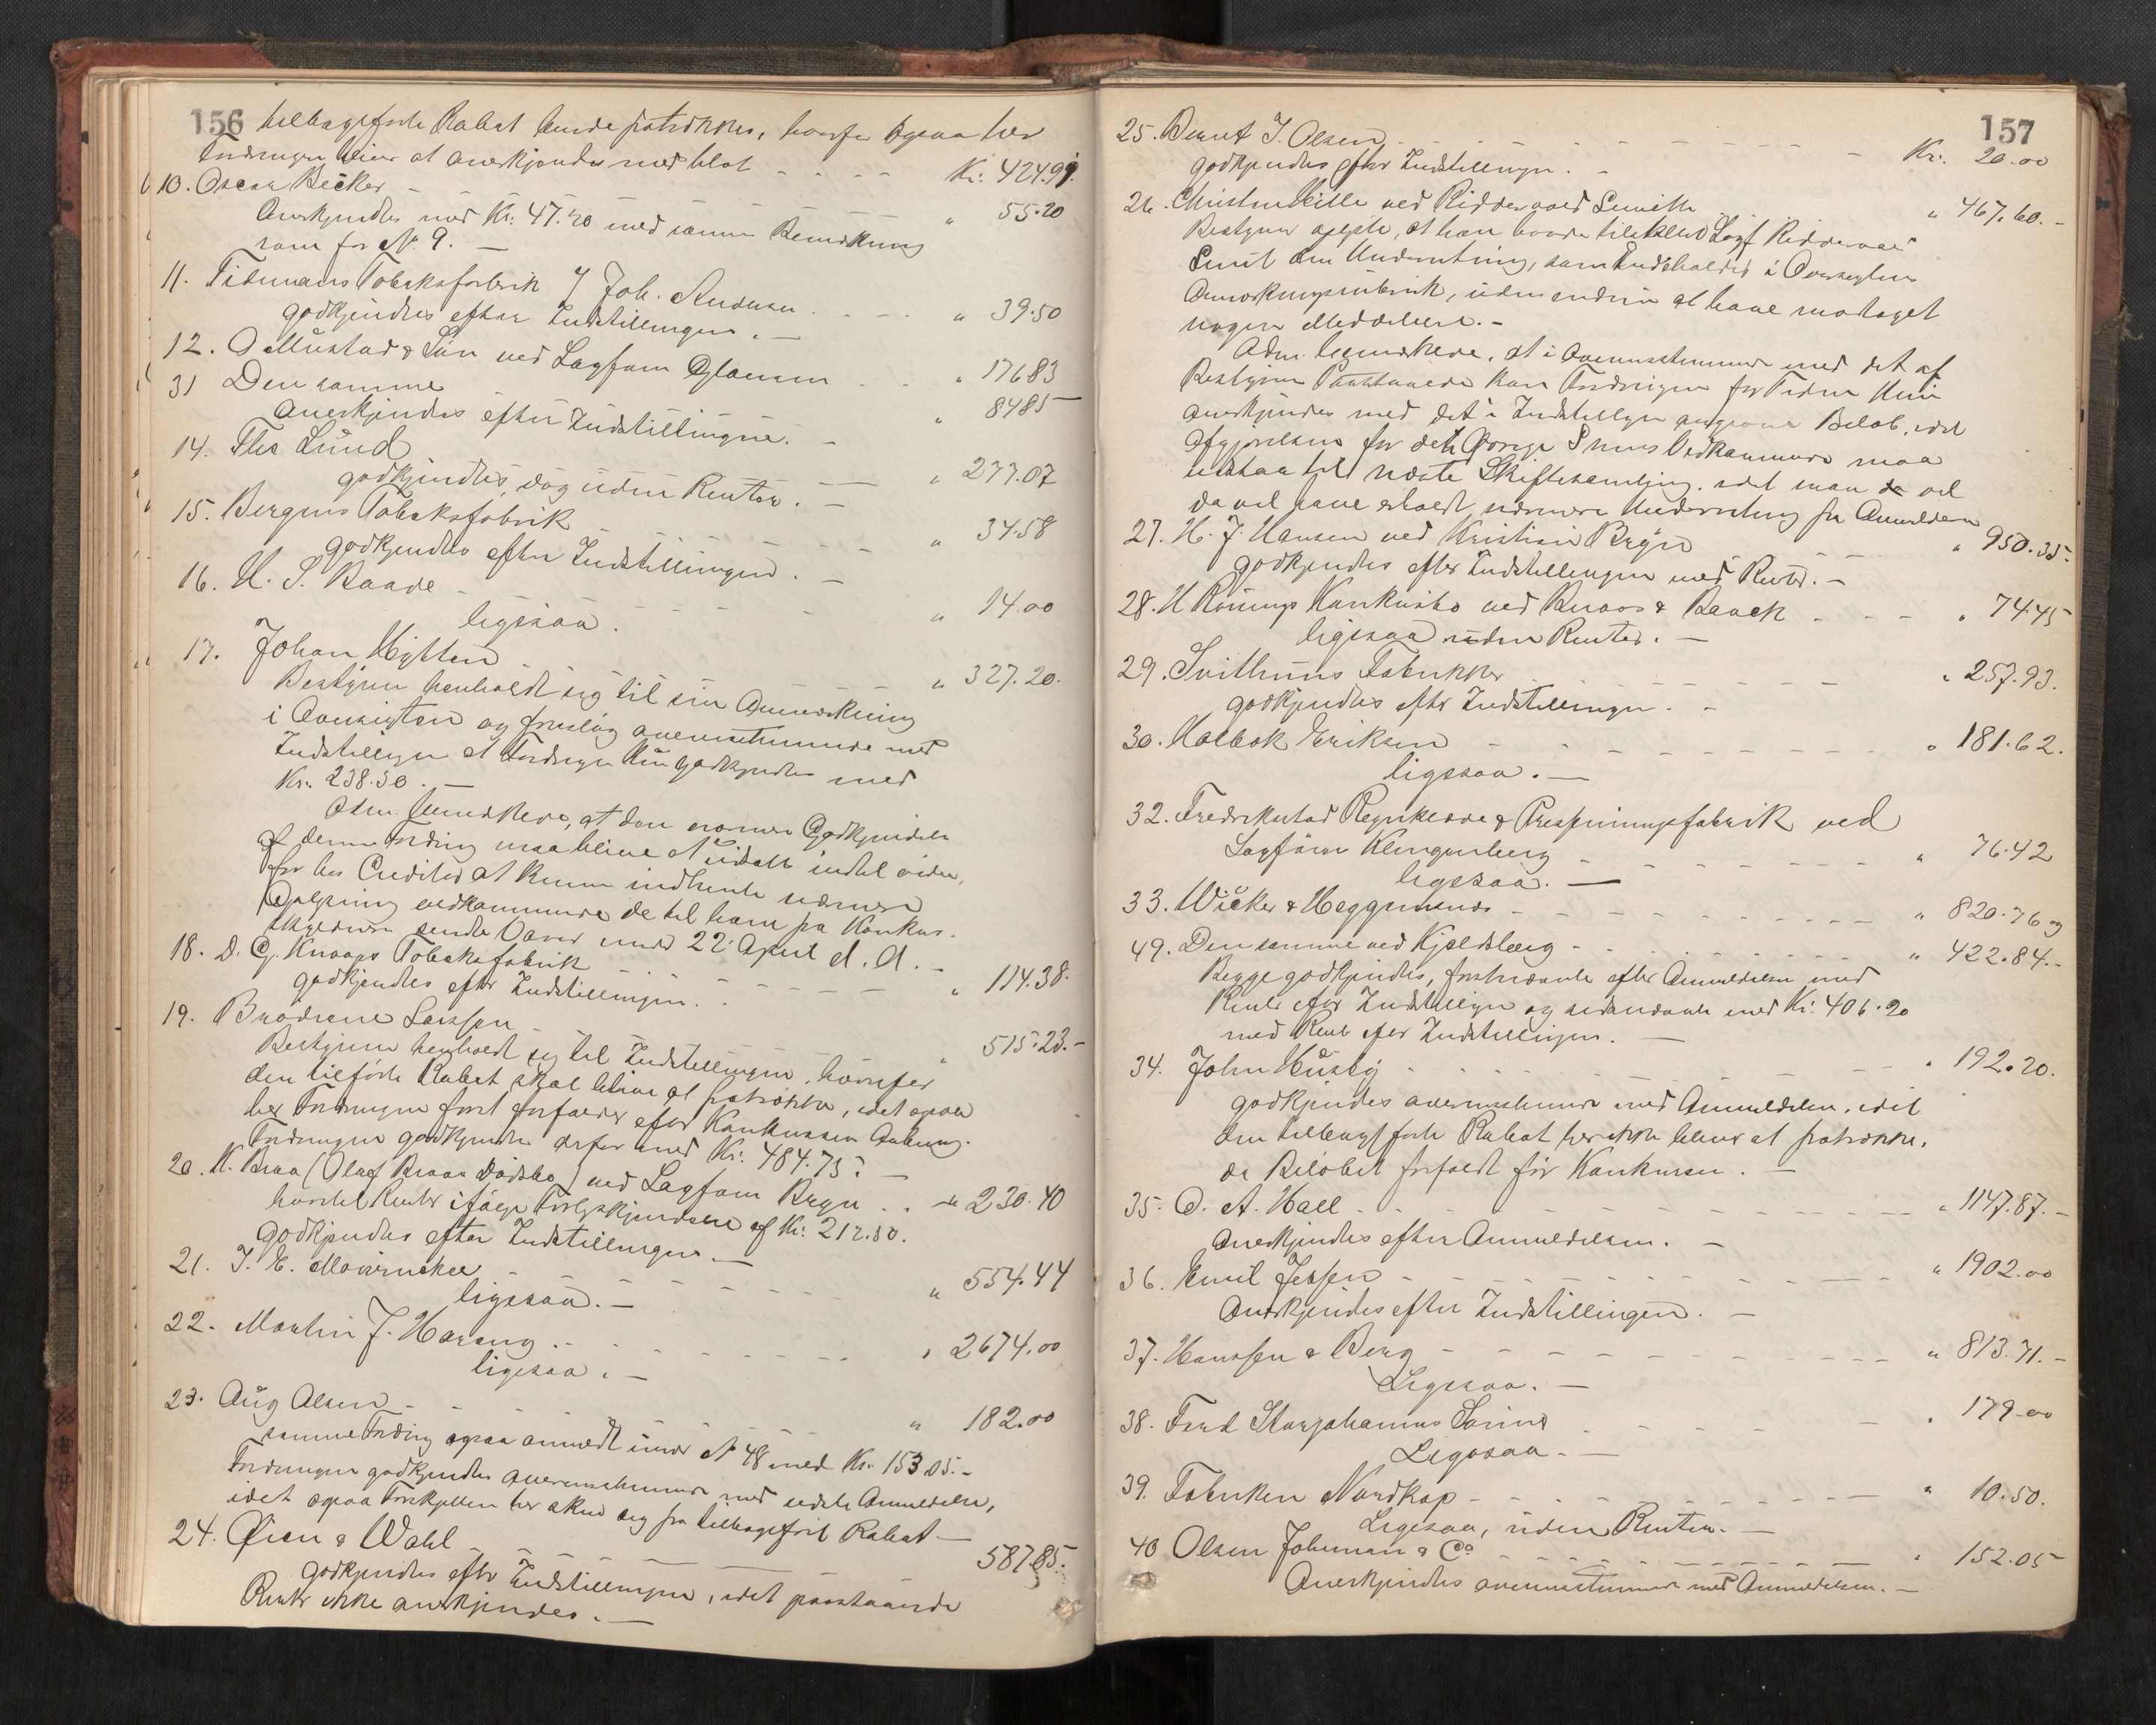 156 tilbageførte Rabat burde fratrækkes, hvorfor ogsaa her
Fordringen bliver at anerkjende med blot - - - - Kr: 424.99.
10. Oscar Becker - - - - " 55.20
Anerkjendes med Kr: 47.20 med samme Bemærkning
som for No. 9. -
11. Tidemans Tobaksfabrik / Joh. Andersen - - - - " 39.50
godkjendtes efter Indstillingen. -
12. O Mustad & Søn ved Sagfører - - - " 176.83
31 Den samme " 84.85
Anerkjendtes efter Indstillingerne. -
14. Ths Lund - - - " 277.07
godkjendtes, dog uden Renter. -
15. Bergens Tobaksfabrik - - - - " 34.58
godkjendtes efter Indstillingen. -
16. H. S. Baade - - - - " 14.00
ligesaa.
17. Johan Hytten - - - - " 327.20.
Bestyreren henholdt sig til sin Anmærkning
i Oversigten og foreslog overensstemmende med
Indstillingen at Fordringen kun godkjendtes med
Kr: 238.30. -
Adm. bemærkede, at den nærmere Godkjendelse
af denne Fordring maa blive at udsætte indtil videre,
for hos Creditor at kunne indhente nærmere
Oplysning vedkommende de til ham fra Konkurs-
sendte Varer under 22' April d. A. -
18. D. C. Knoops Tobaksfabrik - - - - " 114.38.
godkjendtes efter Indstillingen. -
19. Brødrene Larssen - - - - " 515.23.-
Bestyreren henholdt sig til Indstillingen, hvorefter
den tilførte Rabat skal blive at fratrække, idet ogsaa
her Fordringen først forfalder efter Konkursens Aabning.
Fordringen godkjendtes derfor med Kr: 484.75. -
20. K. Braa (Olaf Braas Dødsbo) ved Sagfører Bryn . . " 230.40
hvortil Renter ifølge af Kr: 212.50.
godkjendtes efter Indstillingen. -
21. J. E. Mowinckel - - - - " 554.44
ligesaa. -
22. Martin J. Harang - - - - " 2674.00
ligesaa. -
23. Aug Olsen - - - - " 182.00
samme Fordring ogsaa anmeldt under No 48 med Kr. 153.05.-
Fordringen godkjendtes overensstemmende med sidste Anmeldelse,
idet ogsaa Forskjellen her skriver sig fra tilbageført Rabat -
24. Øien & Wahl - - - - 587.85.
godkjendtes efter Indstillingen, idet paastaaede
Renter ikke anerkjendes. -
157
25. Bernt J. Olsen - - - - Kr: 20.00
godkjendtes efter Indstillingen. -
26. Christen Hille ved Riddervold Smith " 467.60.-
Bestyreren oplyste, at han havde tilskrevet Sagf Riddervold
Smith den Underretning, som indeholdes i Oversigtens
Anmærkningsrubrik, uden endnu at have modtaget
nogen Meddelelse. -
Adm. bemærkede, at i Overensstemmelse med det af
Bestyreren Paastaaede kan Fordringen for Tiden kun
anerkjendes med det i Indstillingen angivne Beløb, idet
Afgjørelsen for det Øvriges Vedkommende maa
udstaa til næste Skiftesamling, idet man da vil
da vil have erholdt nærmere Underretning fra Anmelderen
27. H. J. Hansen ved Kristian Bryn - - - " 950.35.
godkjendtes efter Indstillingen med Renter. -
28. H Rønnings Konkursbo ved Knoos & Baack - - - " 74.45
ligesaa uden Renter. -
29. Svithuns Fabrikker - - - - " 257.93.
godkjendtes efter Indstillingen. -
30. Holbæk Eriksen - - - - " 181.62.
ligesaa. -
32. Fredrikstad Presenningsfabrik ved
Sagfører Klingenberg - - - - " 76.42
ligesaa. -
33. Wicker & Heggernæs - - - - " 820.76 og
49. Den samme ved Kjeldsberg - - - - " 422.84.-
Begge godkjendtes, førstnævnte efter Anmeldelsen med
Renter efter Indstillingen og sidstnævnte med Kr: 406.20
med Rente efter Indstillingen. -
34. John Husby - - - - " 192.20.
godkjendtes overensstemmende med Anmeldelsen, idet
den tilbageførte Rabat her ikke bliver at fratrække,
da Beløbet forfaldt før Konkursen. -
35. O. A. Hall - - - - " 1147.87.-
Anerkjendtes efter Anmeldelsen. -
36. Emil Jessen - - - - " 1902.00
Anerkjendtes efter Indstillingen. -
37. Hanssen & Berg - - - - " 813.71.-
Ligesaa. -
38. Ford Storjohanns Sønner - - - - " 179.00
Ligesaa. -
39. Fabriken Nordkap - - - - " 10.50.
Ligesaa, uden Renter. -
40 Olsen Johnman & Co - - - - " 152.05
Anerkjendtes overensstemmende med Anmeldelsen. -